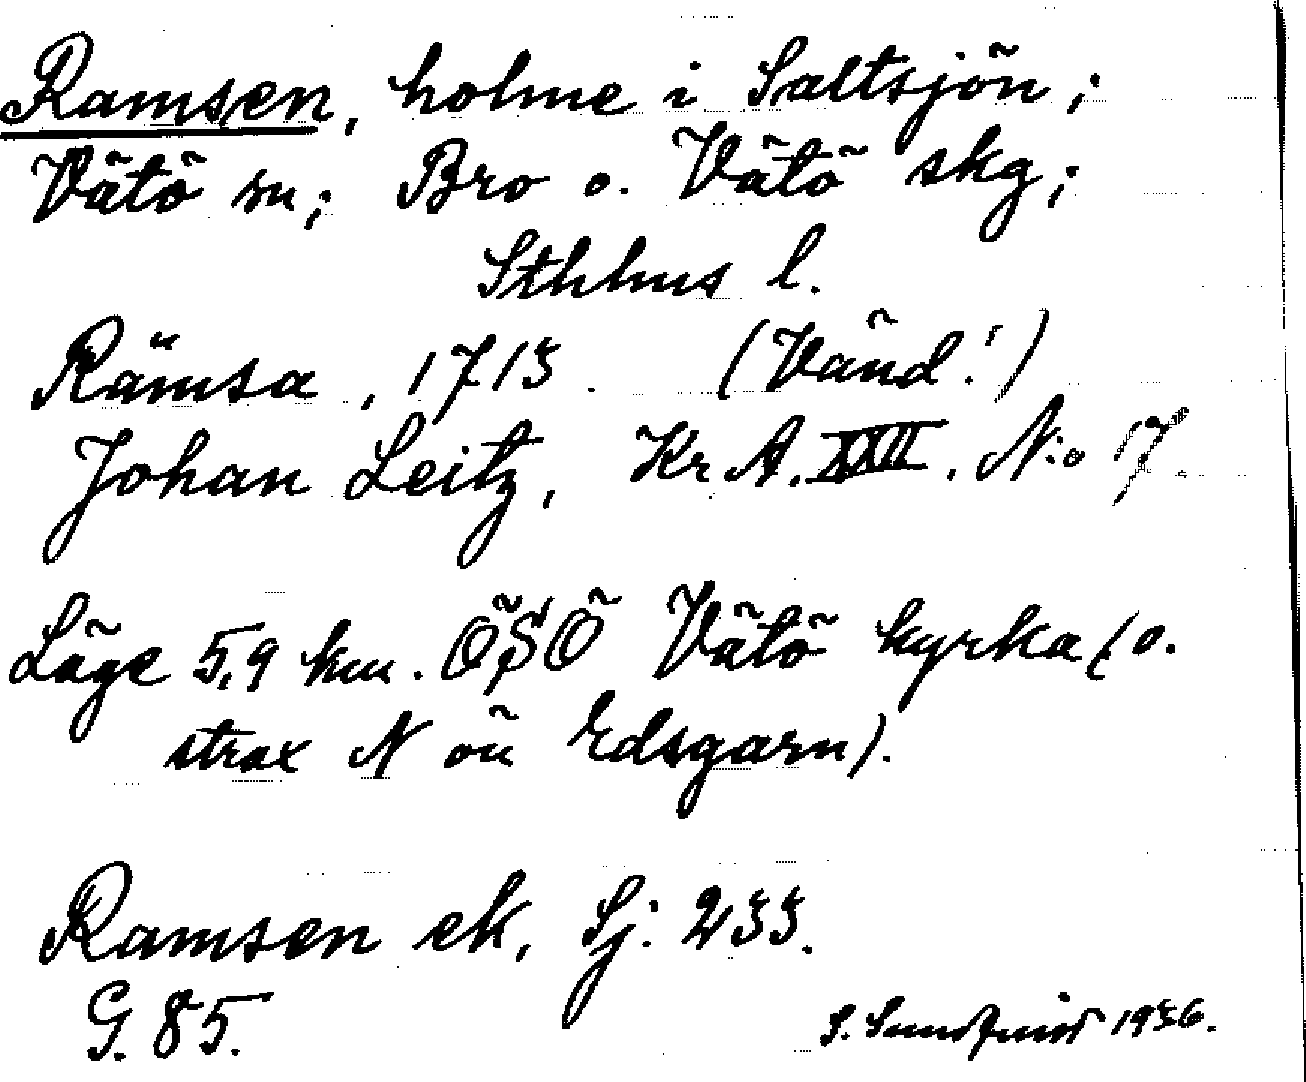 Ramsen, holme i Saltsjön;
Vätö sn; Bro o. Vätö skg;
Sthlms l.
Rämsa, 1713. (Vänd!)
Johan Leitz, Kr A. XXII. N:o 17.
Läge 5,9 km. ÖSÖ Vätö kyrka (o.
strax N on Edsgarn).
Ramsen ek, Sj: 233.
G. 85.
S. Sundquist 1936.